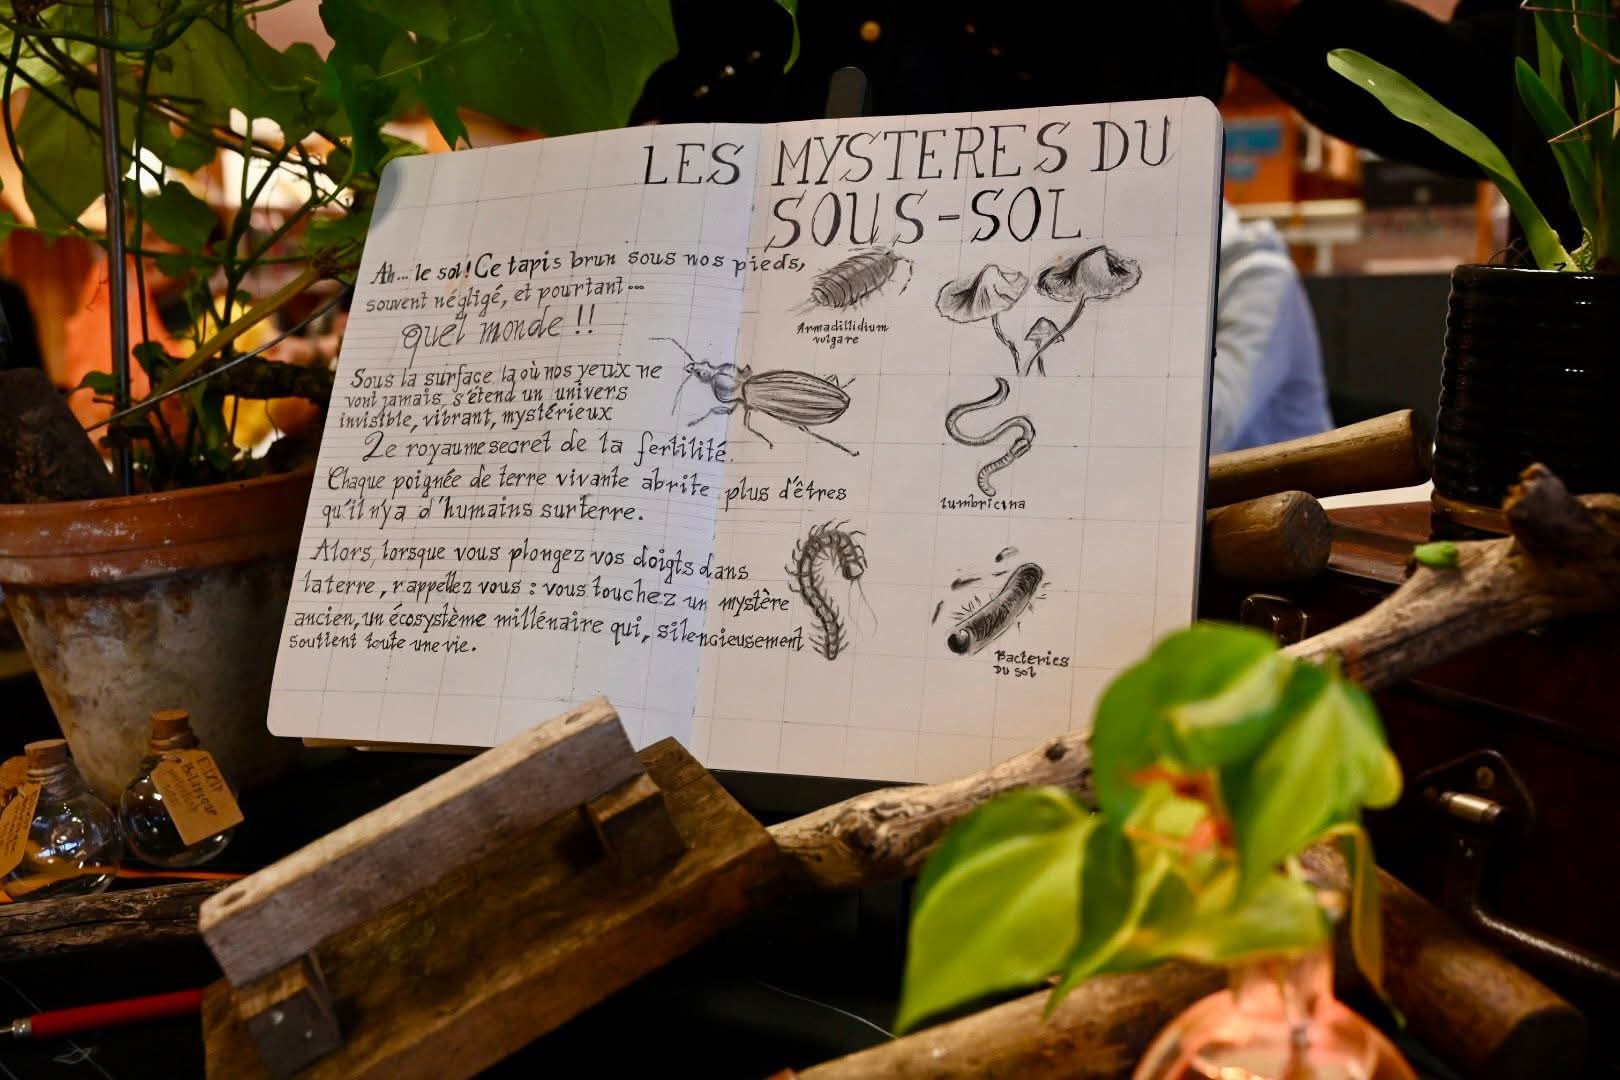 LES MYSTERES DU
SOUS-SOL
Ah... le sol! Ce tapis brun sous nos pieds,
souvent négligé, et pourtant...
quel monde !!
Sous la surface, là où nos yeux ne
vont jamais, s'étend un univers
invisible, vibrant, mystérieux
Le royaume secret de la fertilité.
Chaque poignée de terre vivante abrite plus d'êtres
qu'il n'y a d'humains sur terre.
Alors, lorsque vous plongez vos doigts dans
la terre, rappellez vous : vous touchez un mystère
ancien, un écosystème millénaire qui, silencieusement
soutient toute une vie.
Armadillidium
vulgare
lumbricina
Bacteries
Du sol